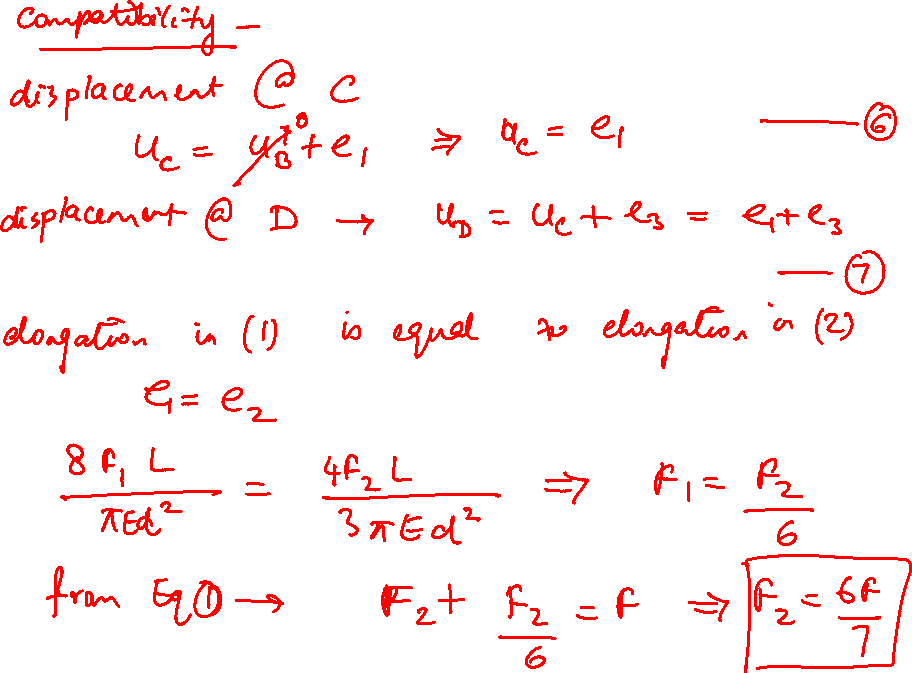 Compatibility –
displacement @ C
u_C = u_B^0 + e_1 ⇒ u_C = e_1 —— ⑥
displacement @ D → u_D = u_C + e_3 = e_1 + e_3
—— ⑦
elongation in (1) is equal to elongation in (2)
e_1 = e_2
8 F_1 L / πEd² = 4F_2 L / 3πEd² ⇒ F_1 = F_2 / 6
from Eq ① → F_2 + F_2 / 6 = F ⇒ F_2 = 6F / 7